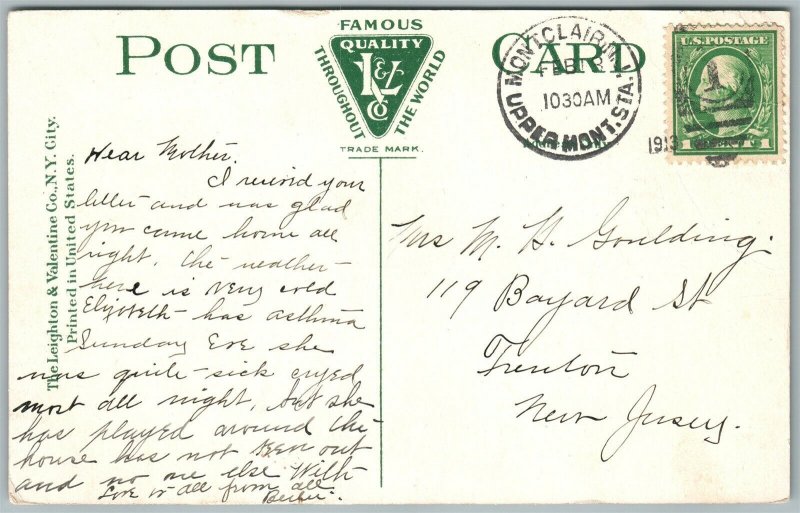 POST CARD
FAMOUS
QUALITY
THROUGHOUT THE WORLD
K&L
Co
TRADE MARK.
MONTCLAIR, N.J.
FEB 13
1030AM
UPPER MONT. STA.
1913
U.S. POSTAGE
1
The Leighton & Valentine Co., N.Y. City.
Printed in United States.
Dear Mother.
I recivd your
letter and was glad
you came home all
right. the weather
here is very cold
Elizibeth has asthma
Sunday Eve she
was quite sick cryed
most all night, but she
has played around the
house has not been out
and no one else With
Love to all from all
Mrs M. H. Goulding.
119 Bayard St
Trenton
New Jersey.